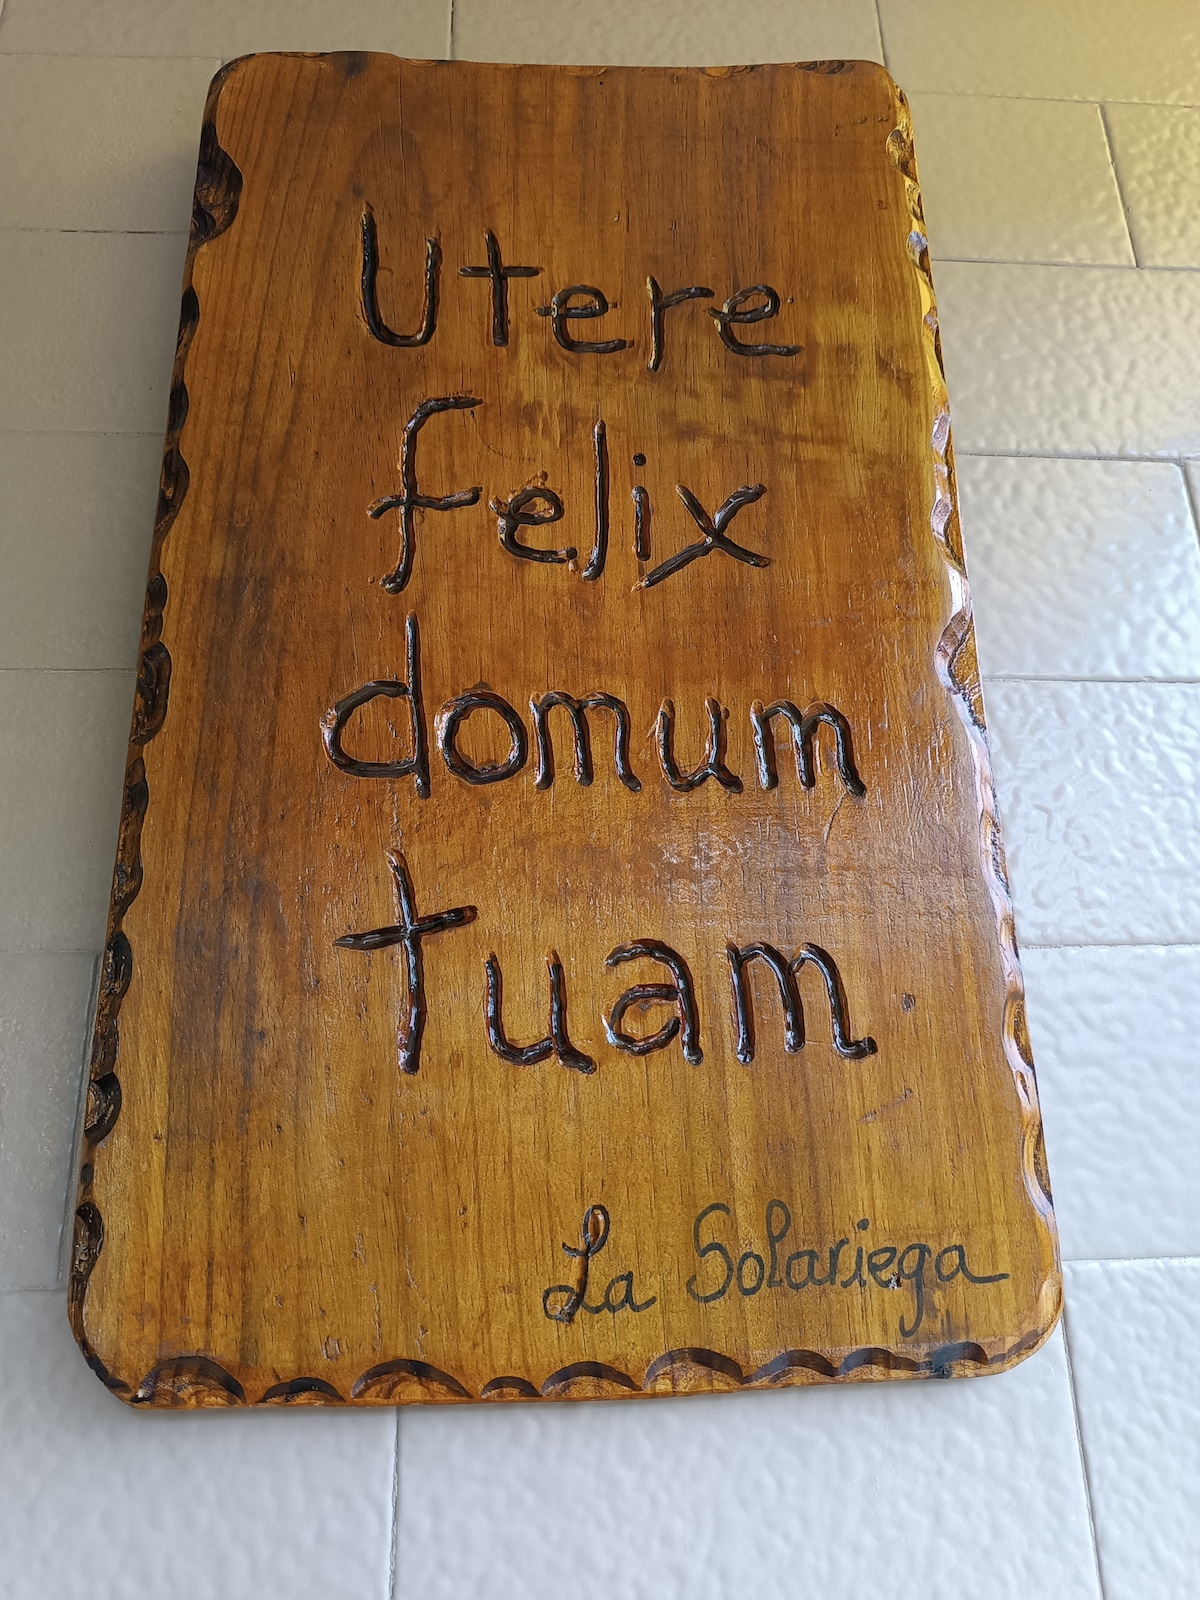 Utere
felix
domum
tuam
La Solariega